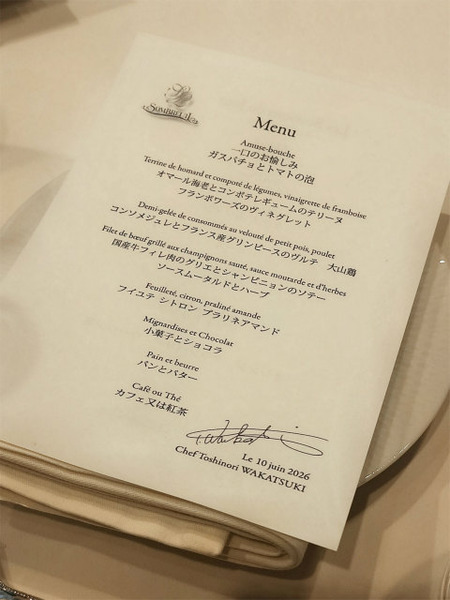 SOMBREUIL
Menu
Amuse-bouche
一口のお愉しみ
ガスパチョとトマトの泡
Terrine de homard et compoté de légumes, vinaigrette de framboise
オマール海老とコンポテレギュームのテリーヌ
フランボワーズのヴィネグレット
Demi-gelée de consommés au velouté de petit pois, poulet
コンソメジュレとフランス産グリンピースのヴルテ 大山鶏
Filet de bœuf grillé aux champignons sauté, sauce moutarde et d'herbes
国産牛フィレ肉のグリエとシャンピニョンのソテー
ソースムータルドとハーブ
Feuilleté, citron, praliné amande
フイユテ シトロン プラリネアマンド
Mignardises et Chocolat
小菓子とショコラ
Pain et beurre
パンとバター
Café ou Thé
カフェ又は紅茶
Le 10 juin 2026
Chef Toshinori WAKATSUKI